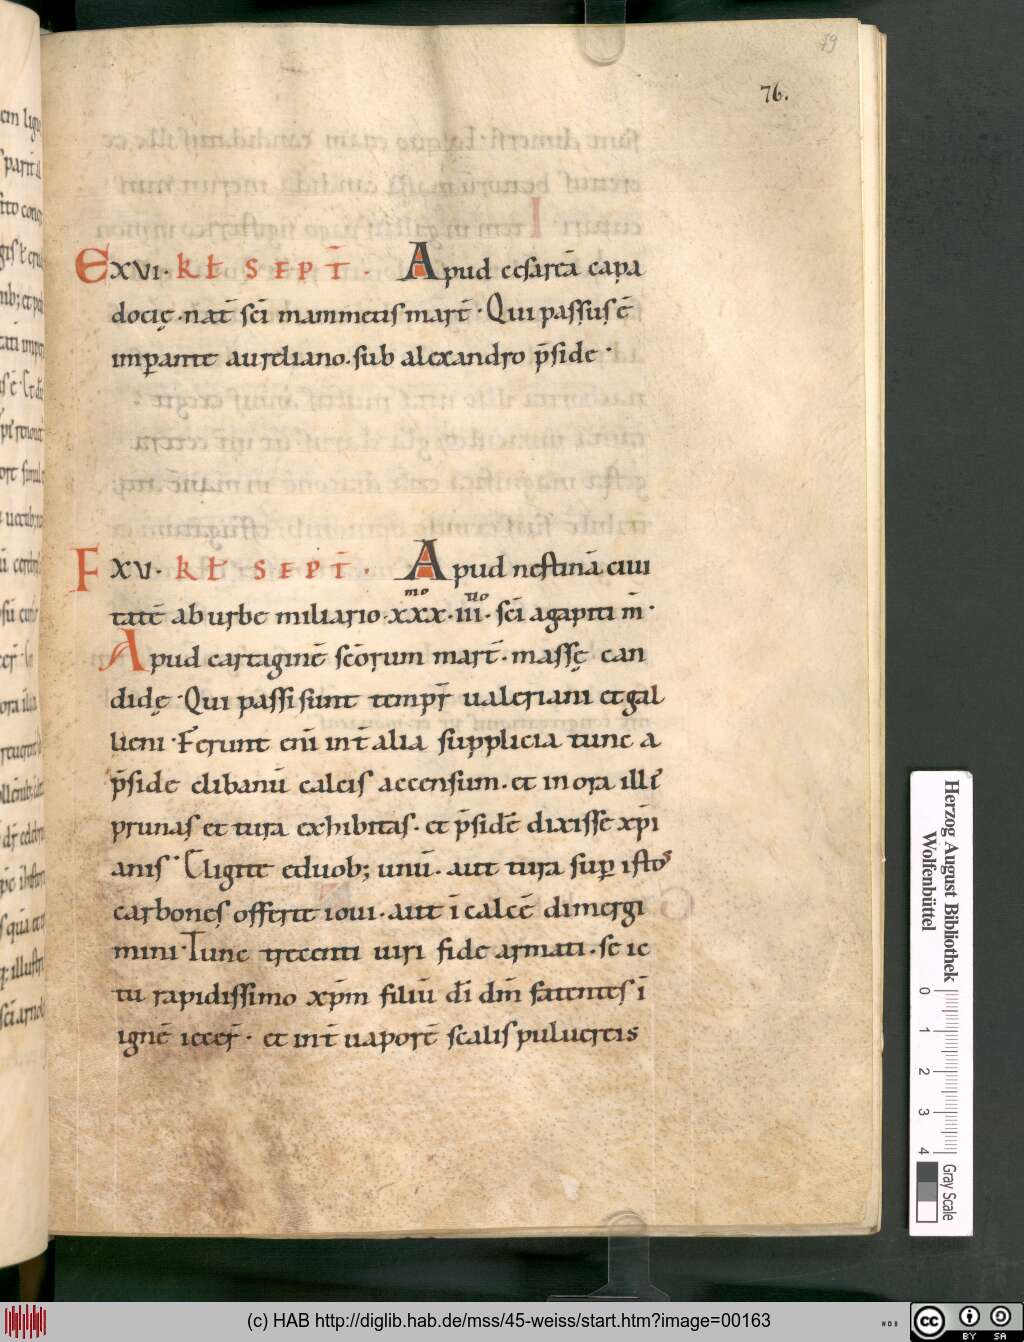 79
76.
E XVI · kł SEPT̄ · Apud cesareā capa
docię · nat̄ sc̄i mammetis mart̄ · Qui passus ē
imꝑante aureliano · sub alexandro p̄side ·
F XV · kł · SEPT̄ · Apud nestinā ciui
mo tio
tatē ab urbe miliario · xxx · iii · sc̄i agapiti m̄ ·
Apud cartaginē sc̄orum mart̄ · massę can
didę · Qui passi sunt tempr̄ ualeriani et gal
lieni · Ferunt eni̅ int̄ alia supplicia tunc a
p̄side clibanū calcis accensum · et in ora illi᷒
prunas et tura exhibitas · et p̄sidē dixisse xp̄i
anis · Eligite eduob; unū · aut tura suꝑ isto᷒
carbones offerte ioui · aut ī calcē dimergi
mini · Tunc trecenti uiri fide armati · se ic
tu rapidissimo xp̄m filiū dī dm̄ fatentes ī
ignē iecer̄ · et int̄ uaporē scalis pulueris
Herzog August Bibliothek
Wolfenbüttel
0 1 2 3 4
Gray Scale
(c) HAB http://diglib.hab.de/mss/45-weiss/start.htm?image=00163
cc BY SA